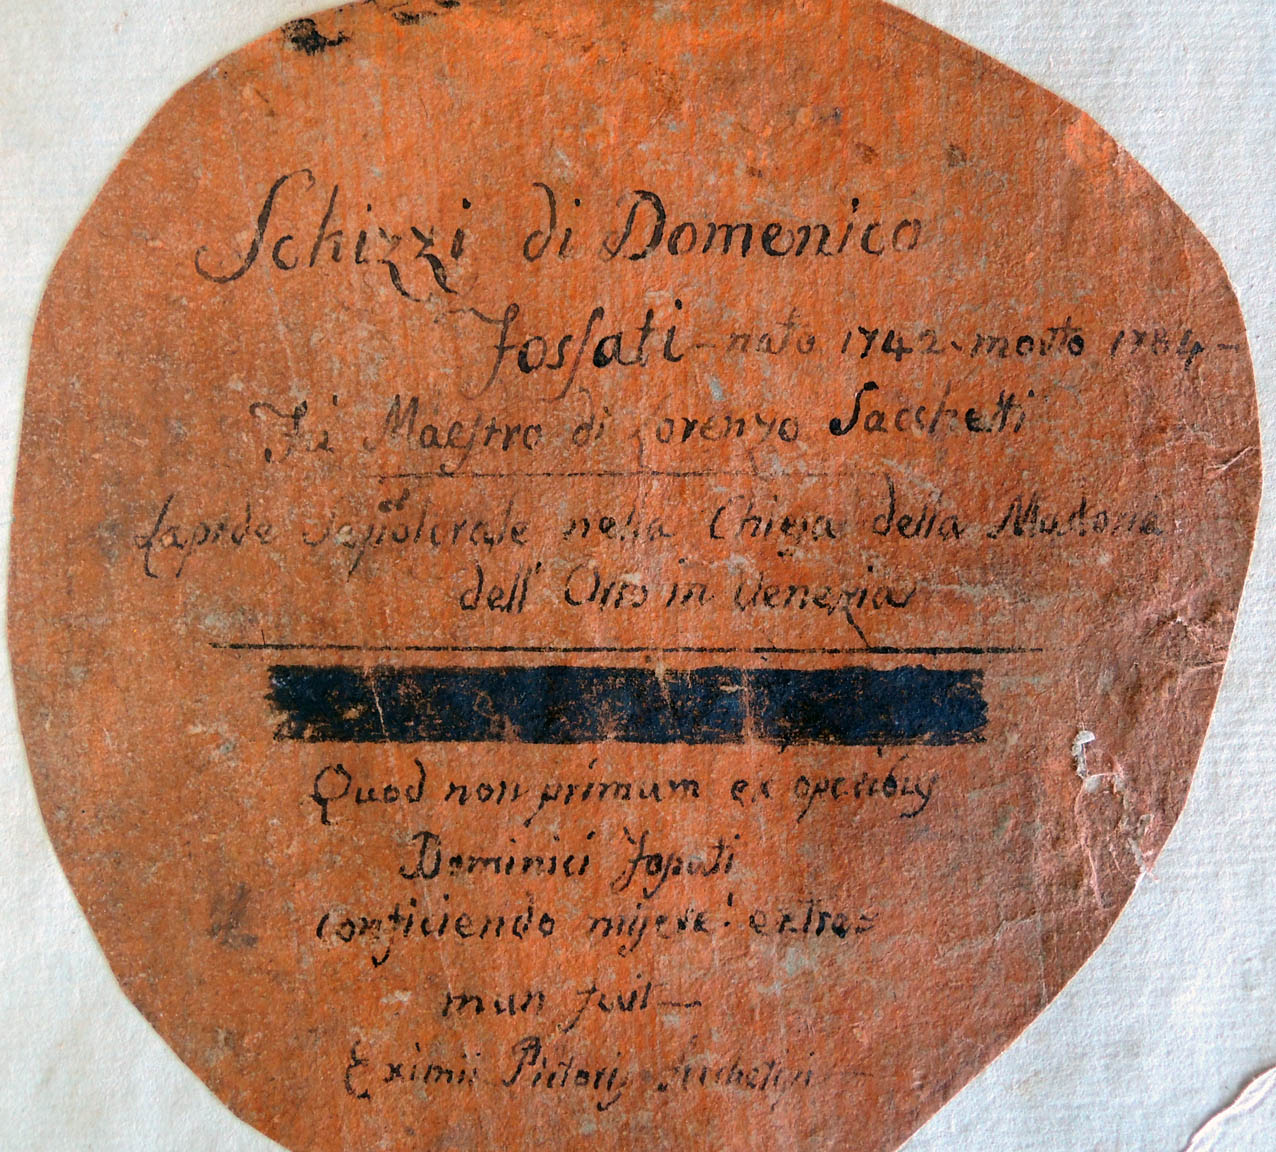 Schizzi di Domenico
Fossati - nato 1742. morto 1784 -
Fù Maestro di Lorenzo Sacchetti
Lapide Sepolcrale nella Chiesa della Madona
dell' Orto in Venezia
Quod non primum ex operibus
Dominici Fossati
conficiendo misere! extre=
mun fuit -
Eximii Pictoris